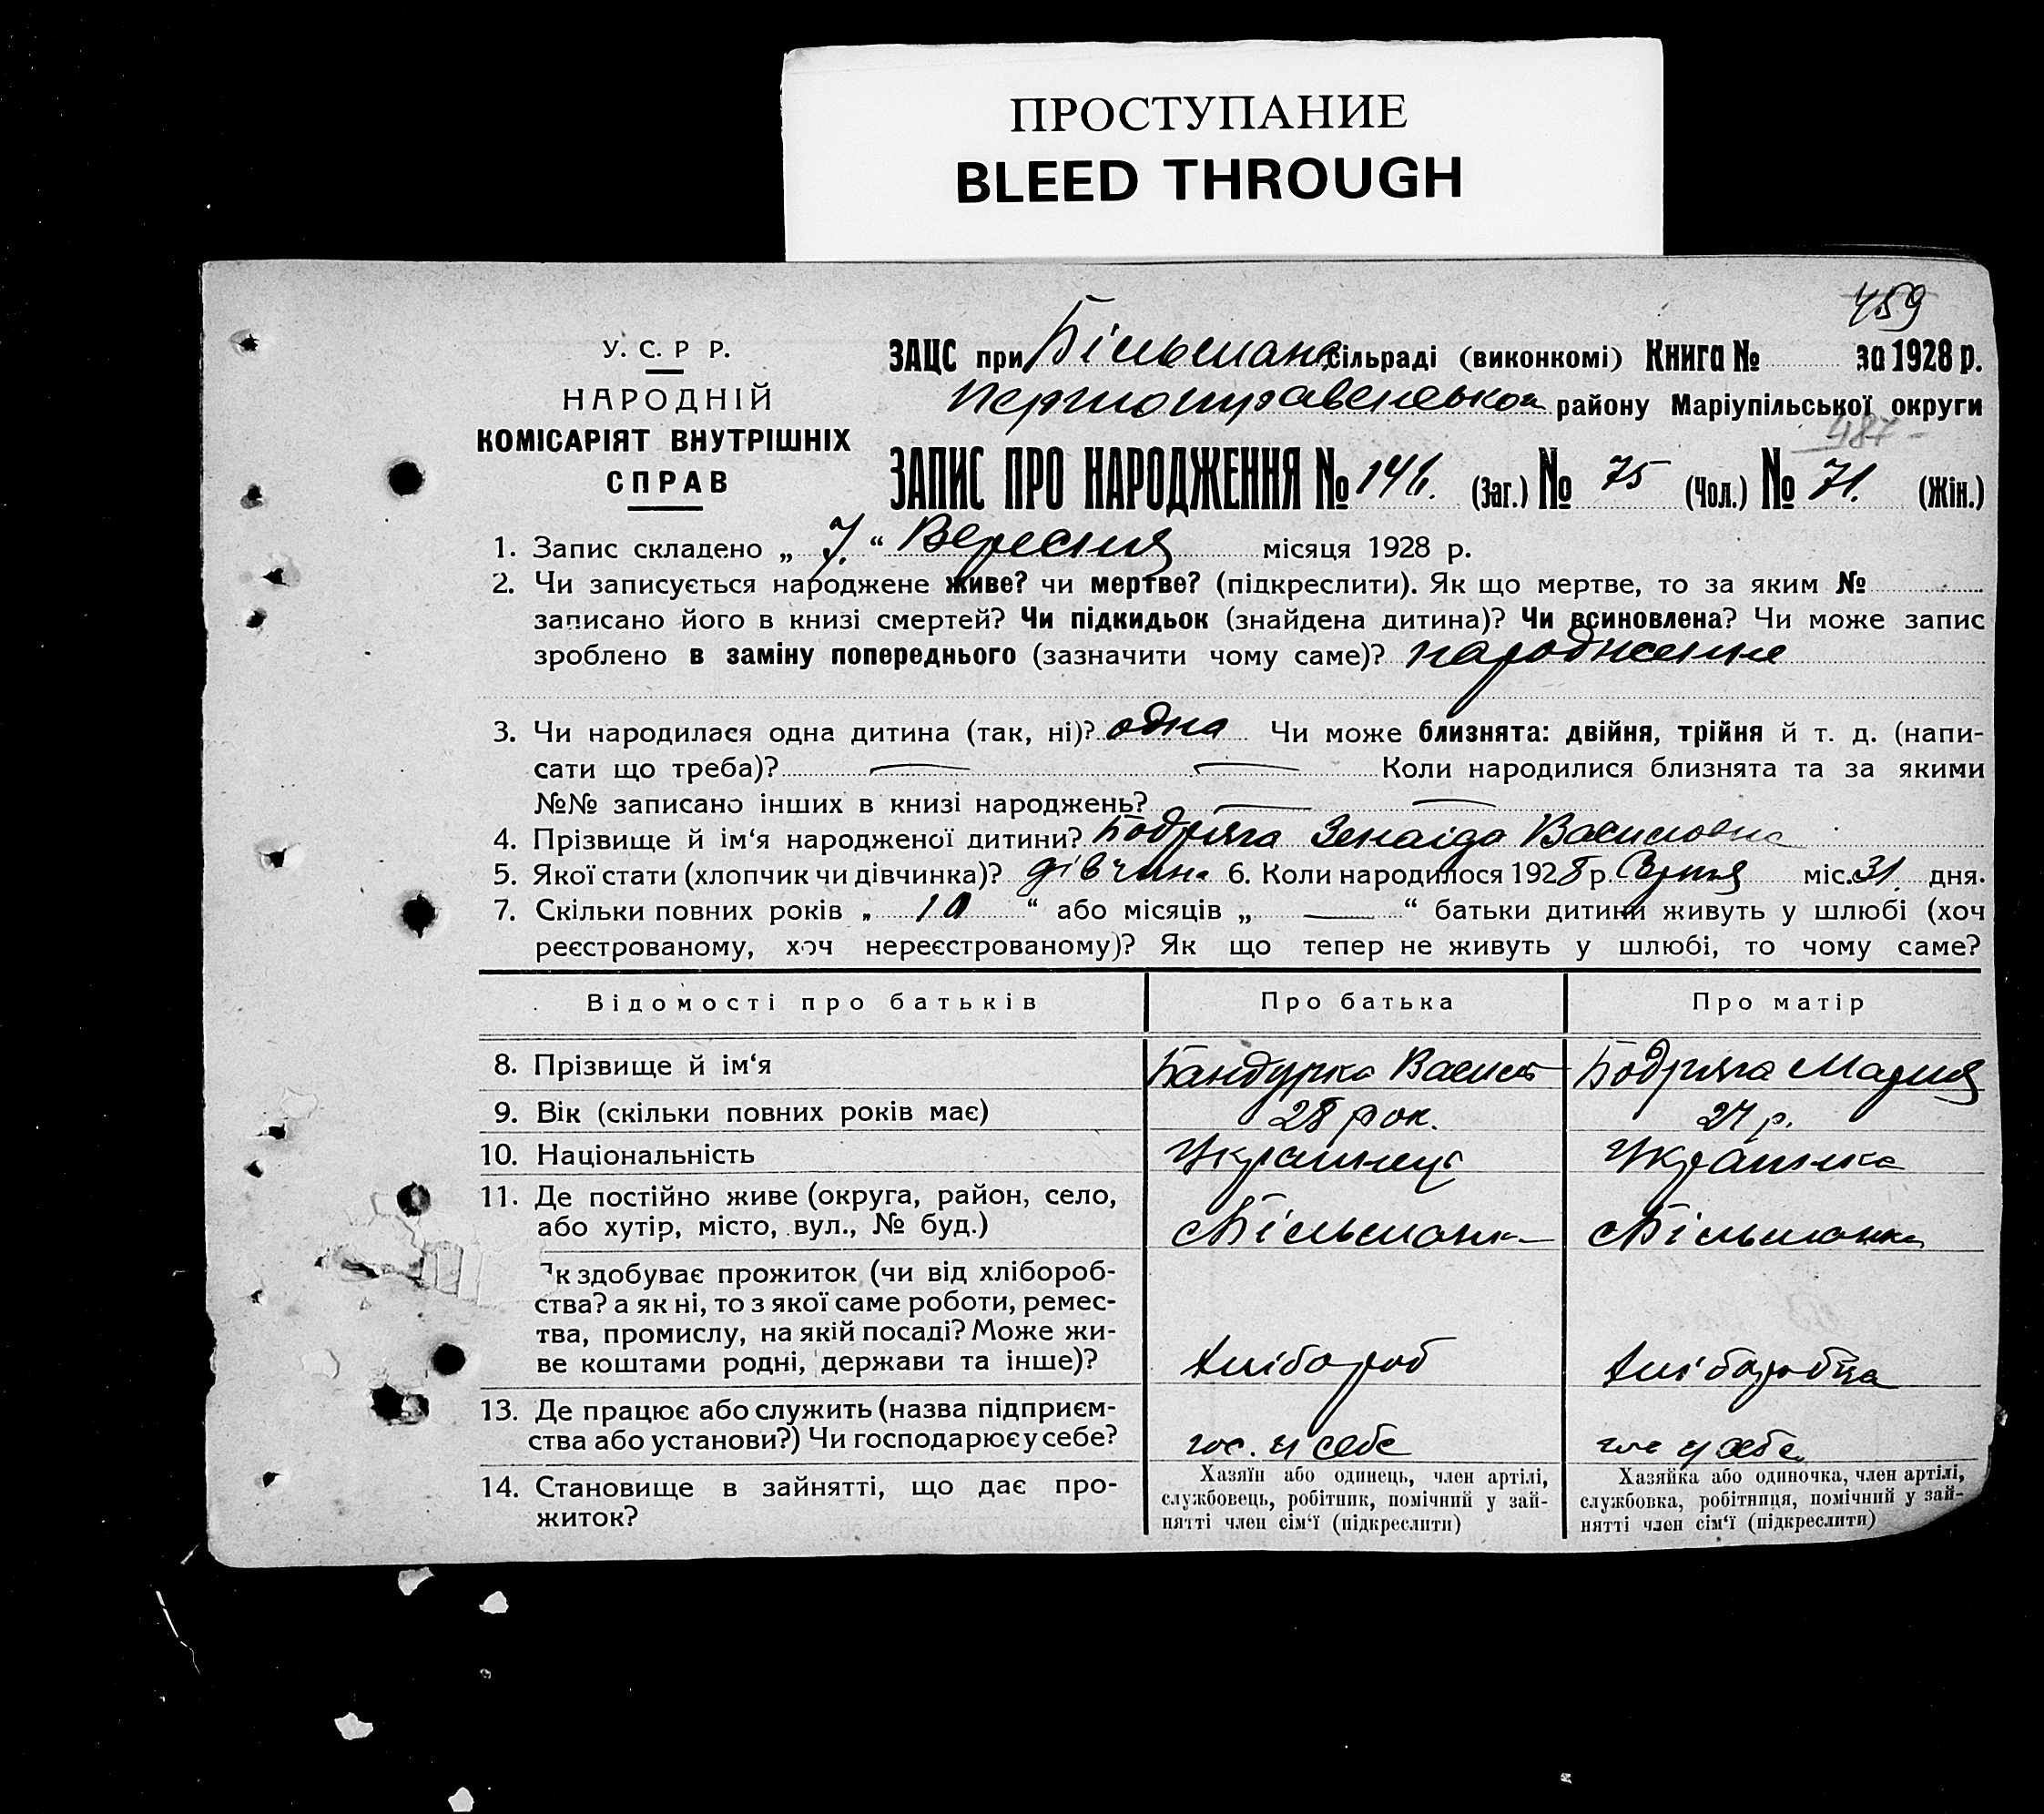 ПРОСТУПАНИЕ
BLEED THROUGH
459
У. С. Р Р.
НАРОДНІЙ
КОМІСАРІЯТ ВНУТРІШНІХ
СПРАВ
ЗАЦС при Більманк сільраді (виконкомі) Книга № за 1928 р.
району Маріупільської округи
487
ЗАПИС ПРО НАРОДЖЕННЯ № 146. (Заг.) № 75 (Чол.) № 71. (Жін.)
1. Запис складено „ 7. “ Вересня місяця 1928 р.
2. Чи записується народжене живе? чи мертве? (підкреслити). Як що мертве, то за яким №
записано його в книзі смертей? Чи підкидьок (знайдена дитина)? Чи всиновлена? Чи може запис
зроблено в заміну попереднього (зазначити чому саме)? народження
3. Чи народилася одна дитина (так, ні)? одна Чи може близнята: двійня, трійня й т. д. (напи-
сати що треба)? Коли народилися близнята та за якими
№№ записано інших в книзі народжень?
4. Прізвище й ім‘я народженої дитини? Бодряга Зенаіда Василовна
5. Якої стати (хлопчик чи дівчинка)? дівчин. 6. Коли народилося 1928 р. Серпня міс. 31 дня.
7. Скільки повних років „ 10 “ або місяців „ — “ батьки дитини живуть у шлюбі (хоч
реєстрованому, хоч нереєстрованому)? Як що тепер не живуть у шлюбі, то чому саме?
Відомості про батьків Про батька Про матір
8. Прізвище й ім‘я Бандурка Василь Бодряга Мария
9. Вік (скільки повних років має) 28 рок. 27 р.
10. Національність Українець Українка
11. Де постійно живе (округа, район, село,
або хутір, місто, вул., № буд.) с Більманка с Більманка
як здобуває прожиток (чи від хлібороб-
ства? а як ні, то з якої саме роботи, ремес-
тва, промислу, на якій посаді? Може жи-
ве коштами родні, держави та інше)? хлібороб хліборобка
13. Де працює або служить (назва підприєм-
ства або установи?) Чи господарює у себе? гос. у себе гос у себе
14. Становище в зайнятті, що дає про-
житок?
Хазяїн або одинець, член артілі,
службовець, робітник, помічний у зай-
нятті член сім‘ї (підкреслити)
Хазяйка або одиночка, член артілі,
службовка, робітниця, помічний у зай-
нятті член сім‘ї (підкреслити)